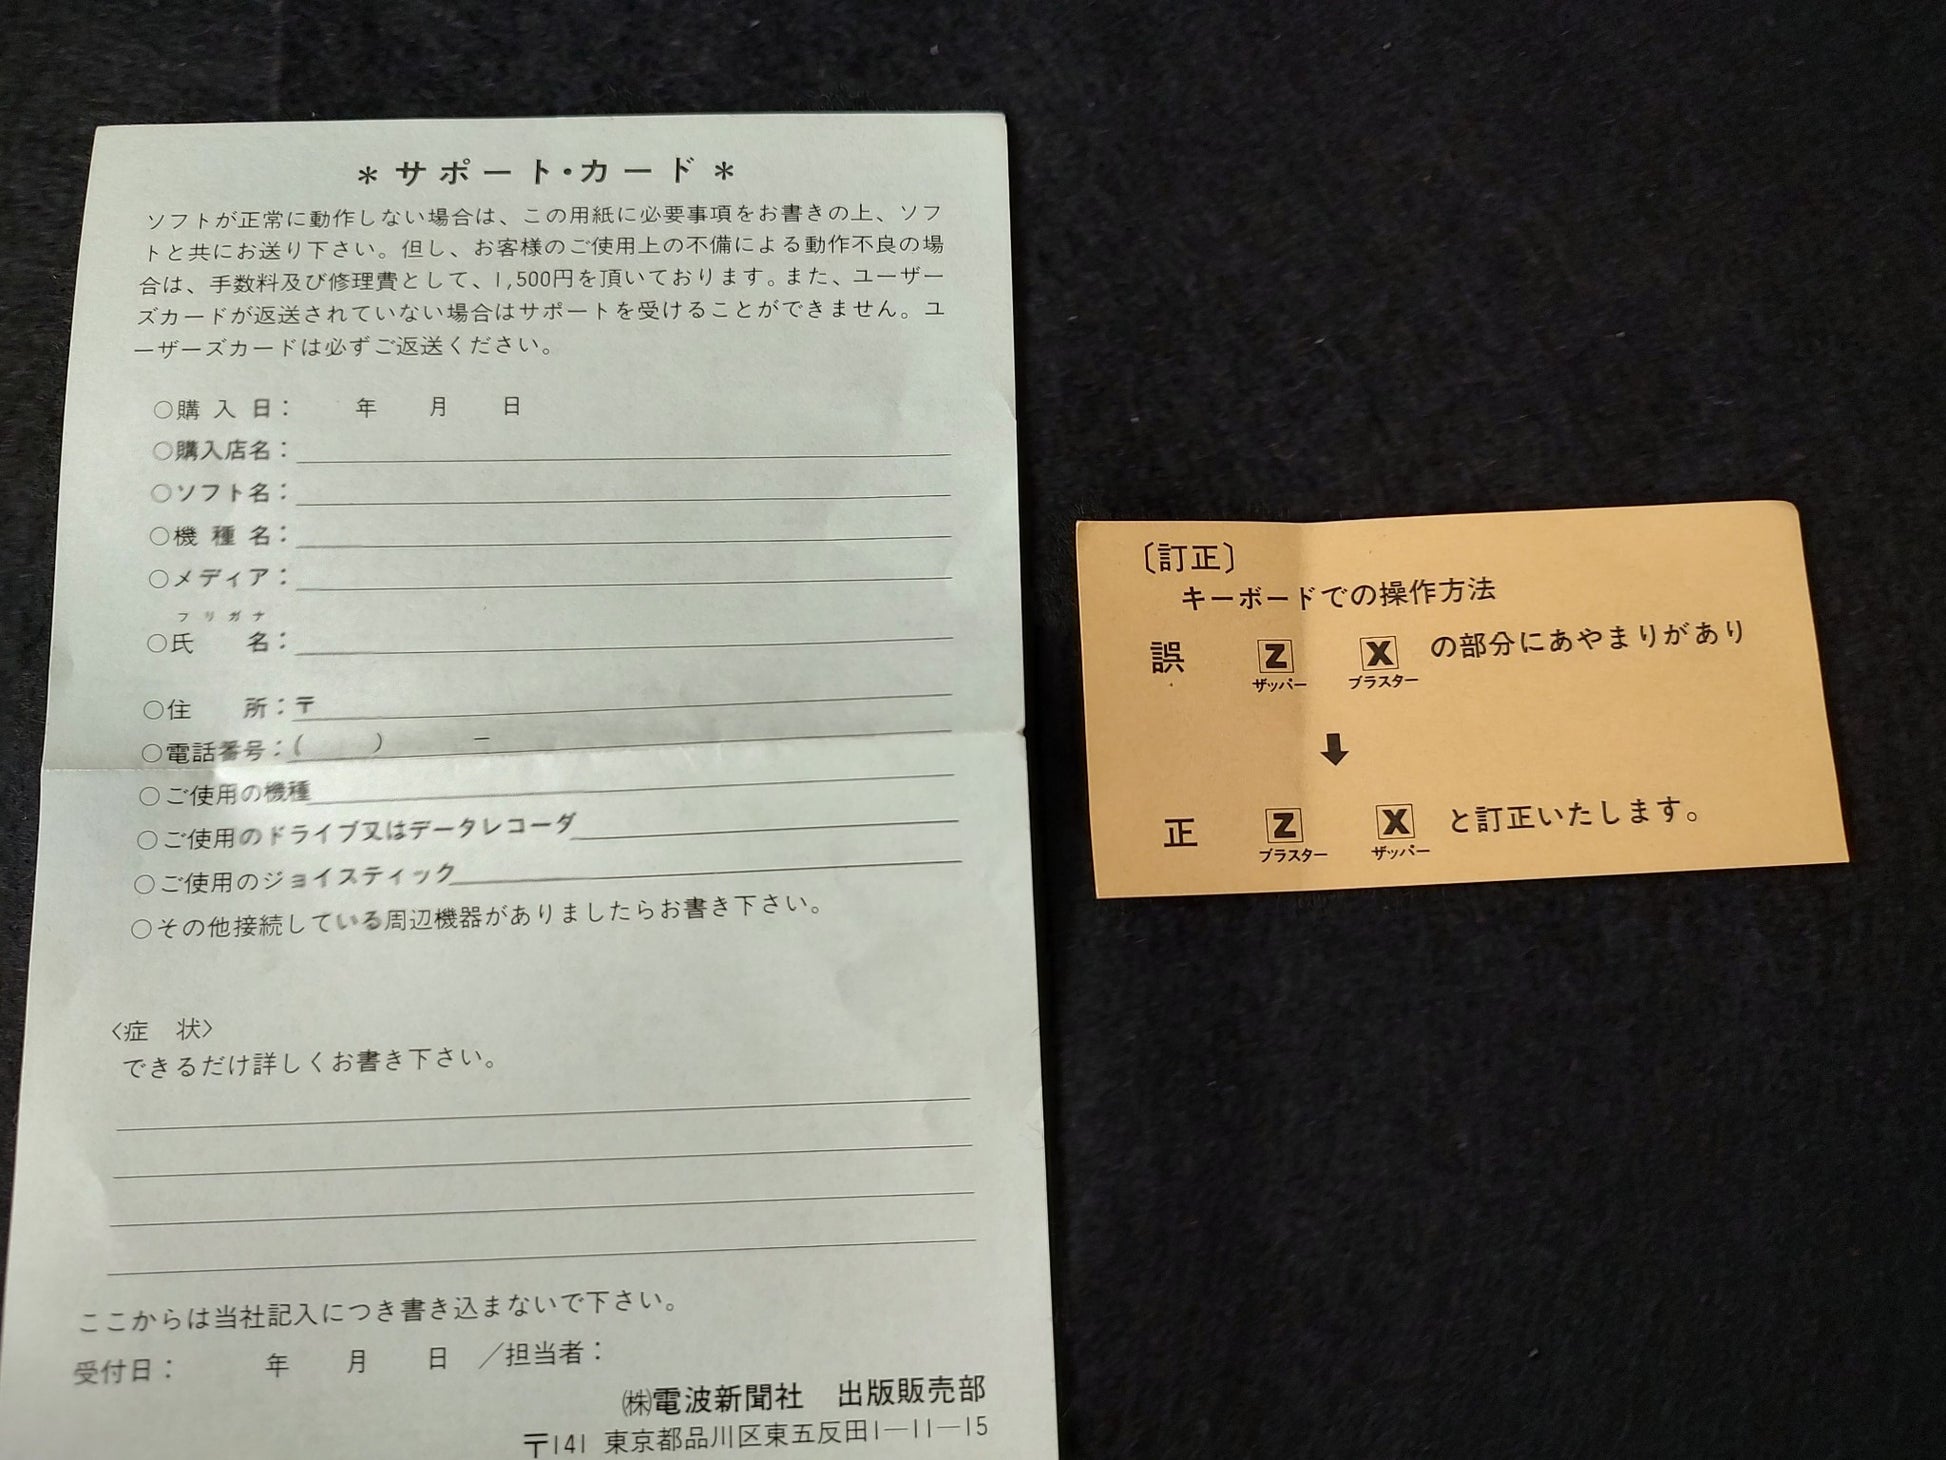 ＊サポート・カード＊
ソフトが正常に動作しない場合は、この用紙に必要事項をお書きの上、ソフ
トと共にお送り下さい。但し、お客様のご使用上の不備による動作不良の場
合は、手数料及び修理費として、1,500円を頂いております。また、ユーザー
ズカードが返送されていない場合はサポートを受けることができません。ユ
ーザーズカードは必ずご返送ください。
○購入日：　　年　　月　　日
○購入店名：
○ソフト名：
○機種名：
○メディア：
フリガナ
○氏　　名：
○住　　所：〒
○電話番号：(　　　)　　　－
○ご使用の機種
○ご使用のドライブ又はデータレコーダ
○ご使用のジョイスティック
○その他接続している周辺機器がありましたらお書き下さい。
〈症　状〉
できるだけ詳しくお書き下さい。
ここからは当社記入につき書き込まないで下さい。
受付日：　　　年　　月　　日　／担当者：
㈱電波新聞社　出版販売部
〒141 東京都品川区東五反田1－11－15
〔訂正〕
キーボードでの操作方法
誤　Z　X　の部分にあやまりがあり
ザッパー　ブラスター
⬇
正　Z　X　と訂正いたします。
ブラスター　ザッパー